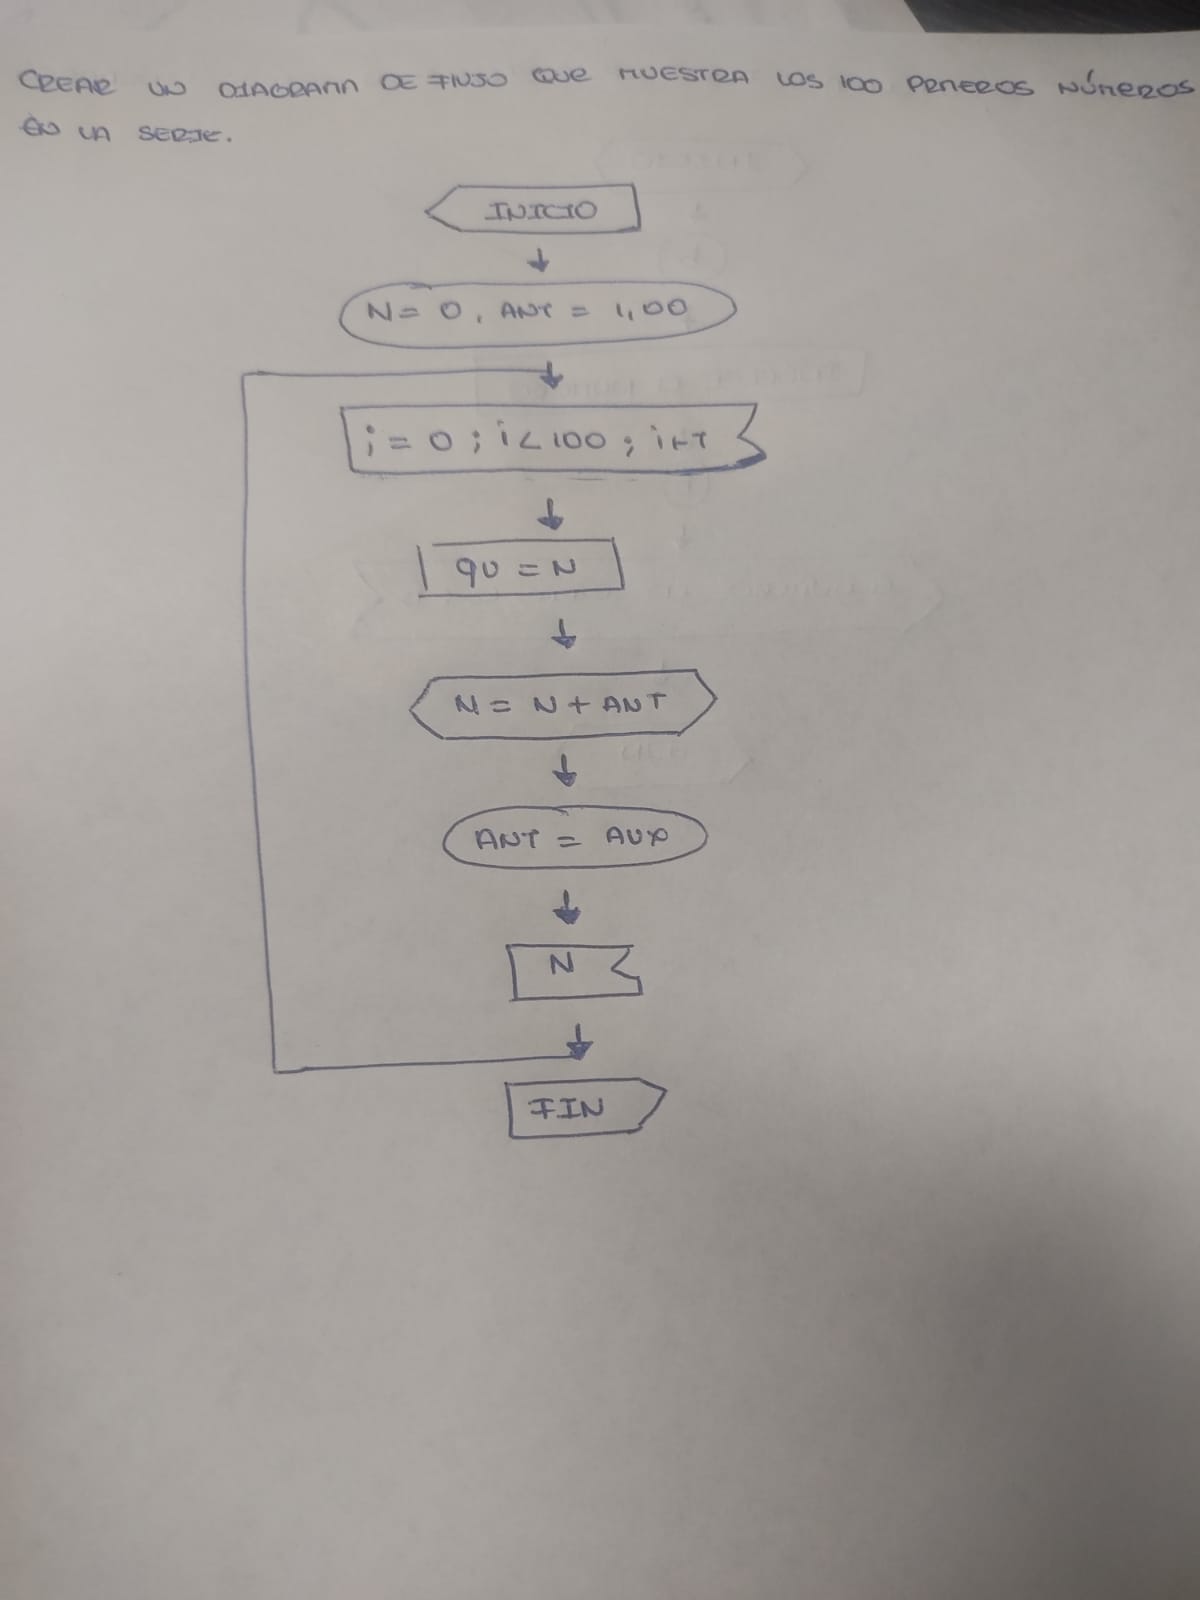 CREAR UN DIAGRAMA DE FLUJO QUE MUESTRA LOS 100 PRMEROS NÚMEROS
EN LA SERIE.
INICIO
N = 0, ANT = 1,00
i = 0 ; i < 100 ; i++
qu = N
N = N + ANT
ANT = AUX
N
FIN